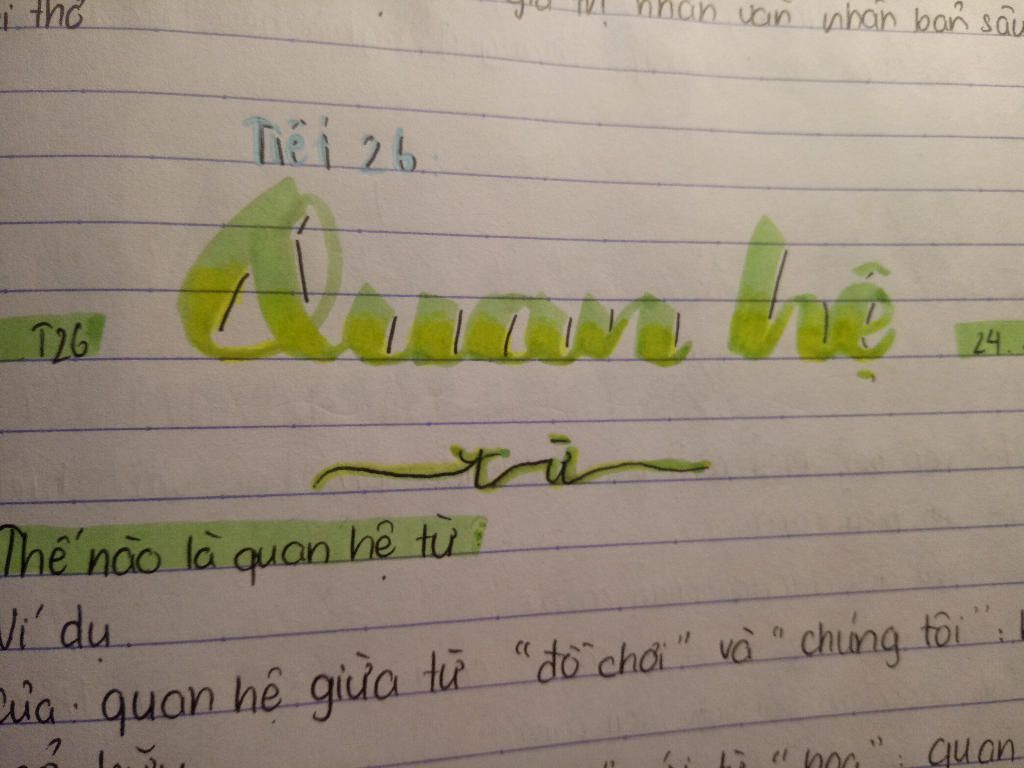 i thơ giá trị nhân văn nhân bản sâu
Tiết 26
Quan hệ
T26
24.
từ
Thế nào là quan hệ từ:
Ví dụ
Của: quan hệ giữa từ "đồ chơi" và "chúng tôi":
"học": quan